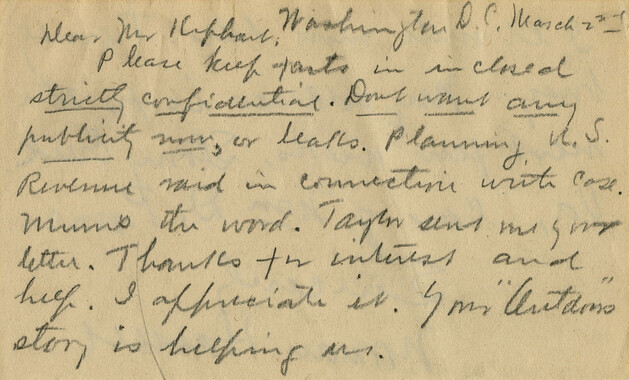 Dear Mr Kephart, Washington D.C. March 2nd
Please keep facts in inclosed
strictly confidential. Dont want any
publicity now, or leaks. Planning U.S.
Revenue raid in connection with case.
Mums the word. Taylor sent me your
letter. Thanks for interest and
help. I appreciate it. Your "Outdoors"
story is helping us.